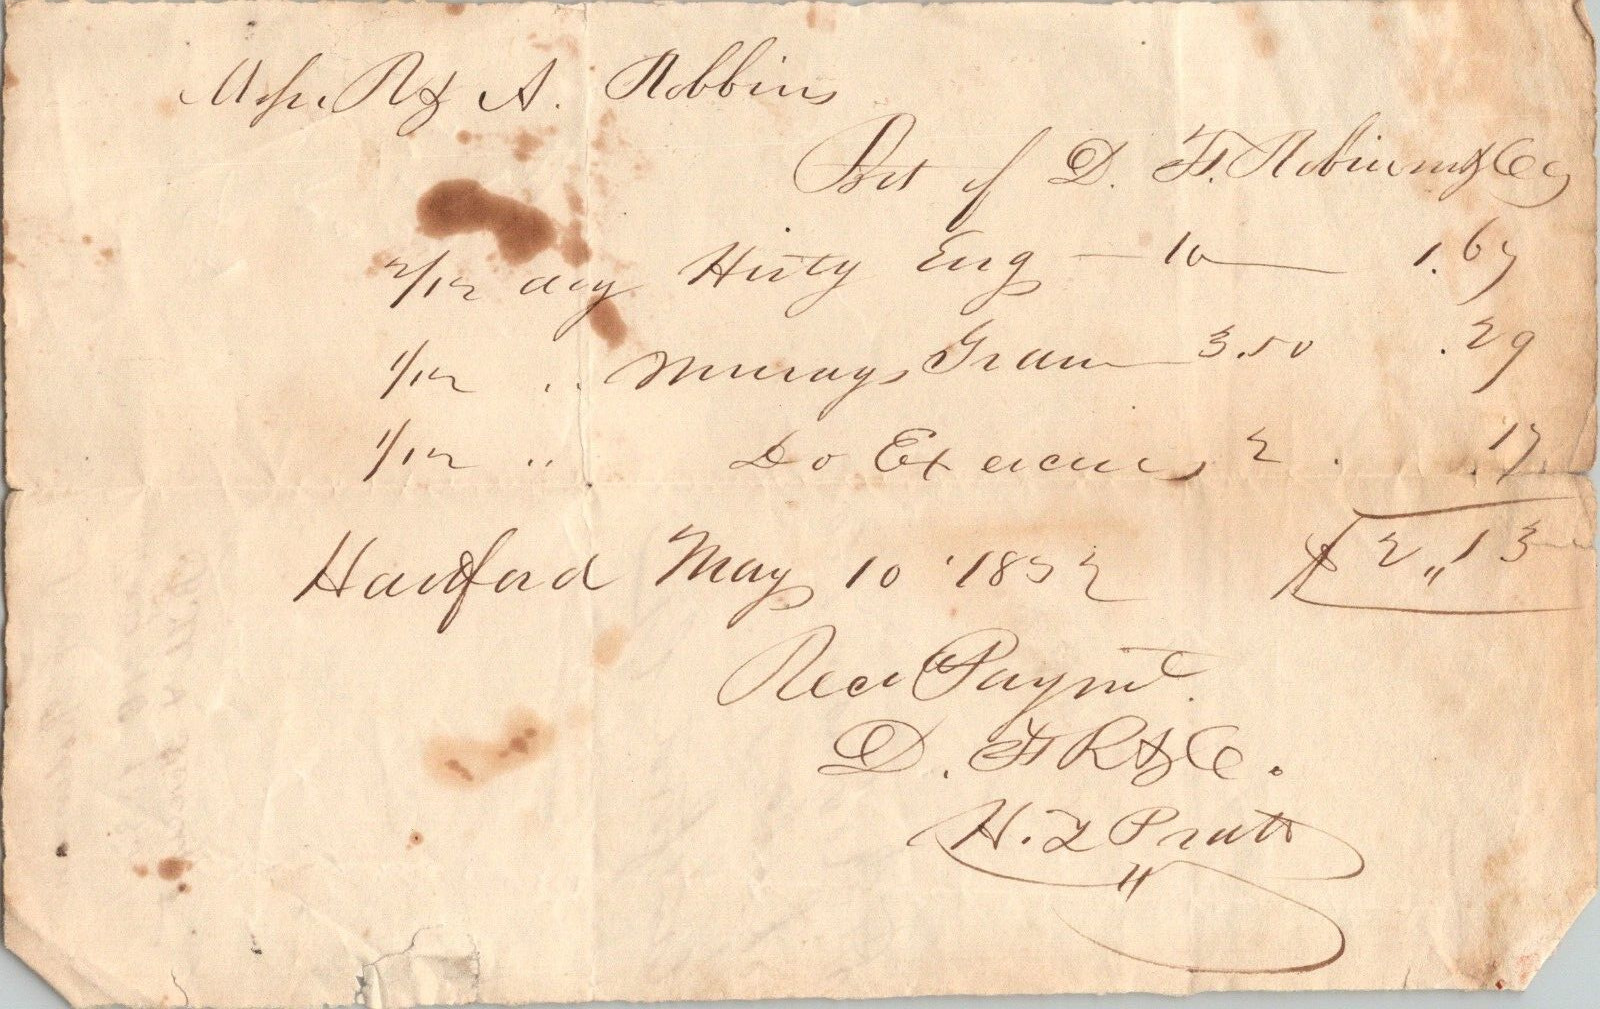 Messrs R & A. Robbins
Bot of D. F. Robinson & Co
2/12 doz Histy Eng — 10 — 1.67
1/12 .. Murrays Gram — 3.50 .29
1/12 .. Do Exercises 2 . .17
Hartford May 10 1832 $2,,13
Recd Paymt.
D. F R & Co.
H. Z Pratt